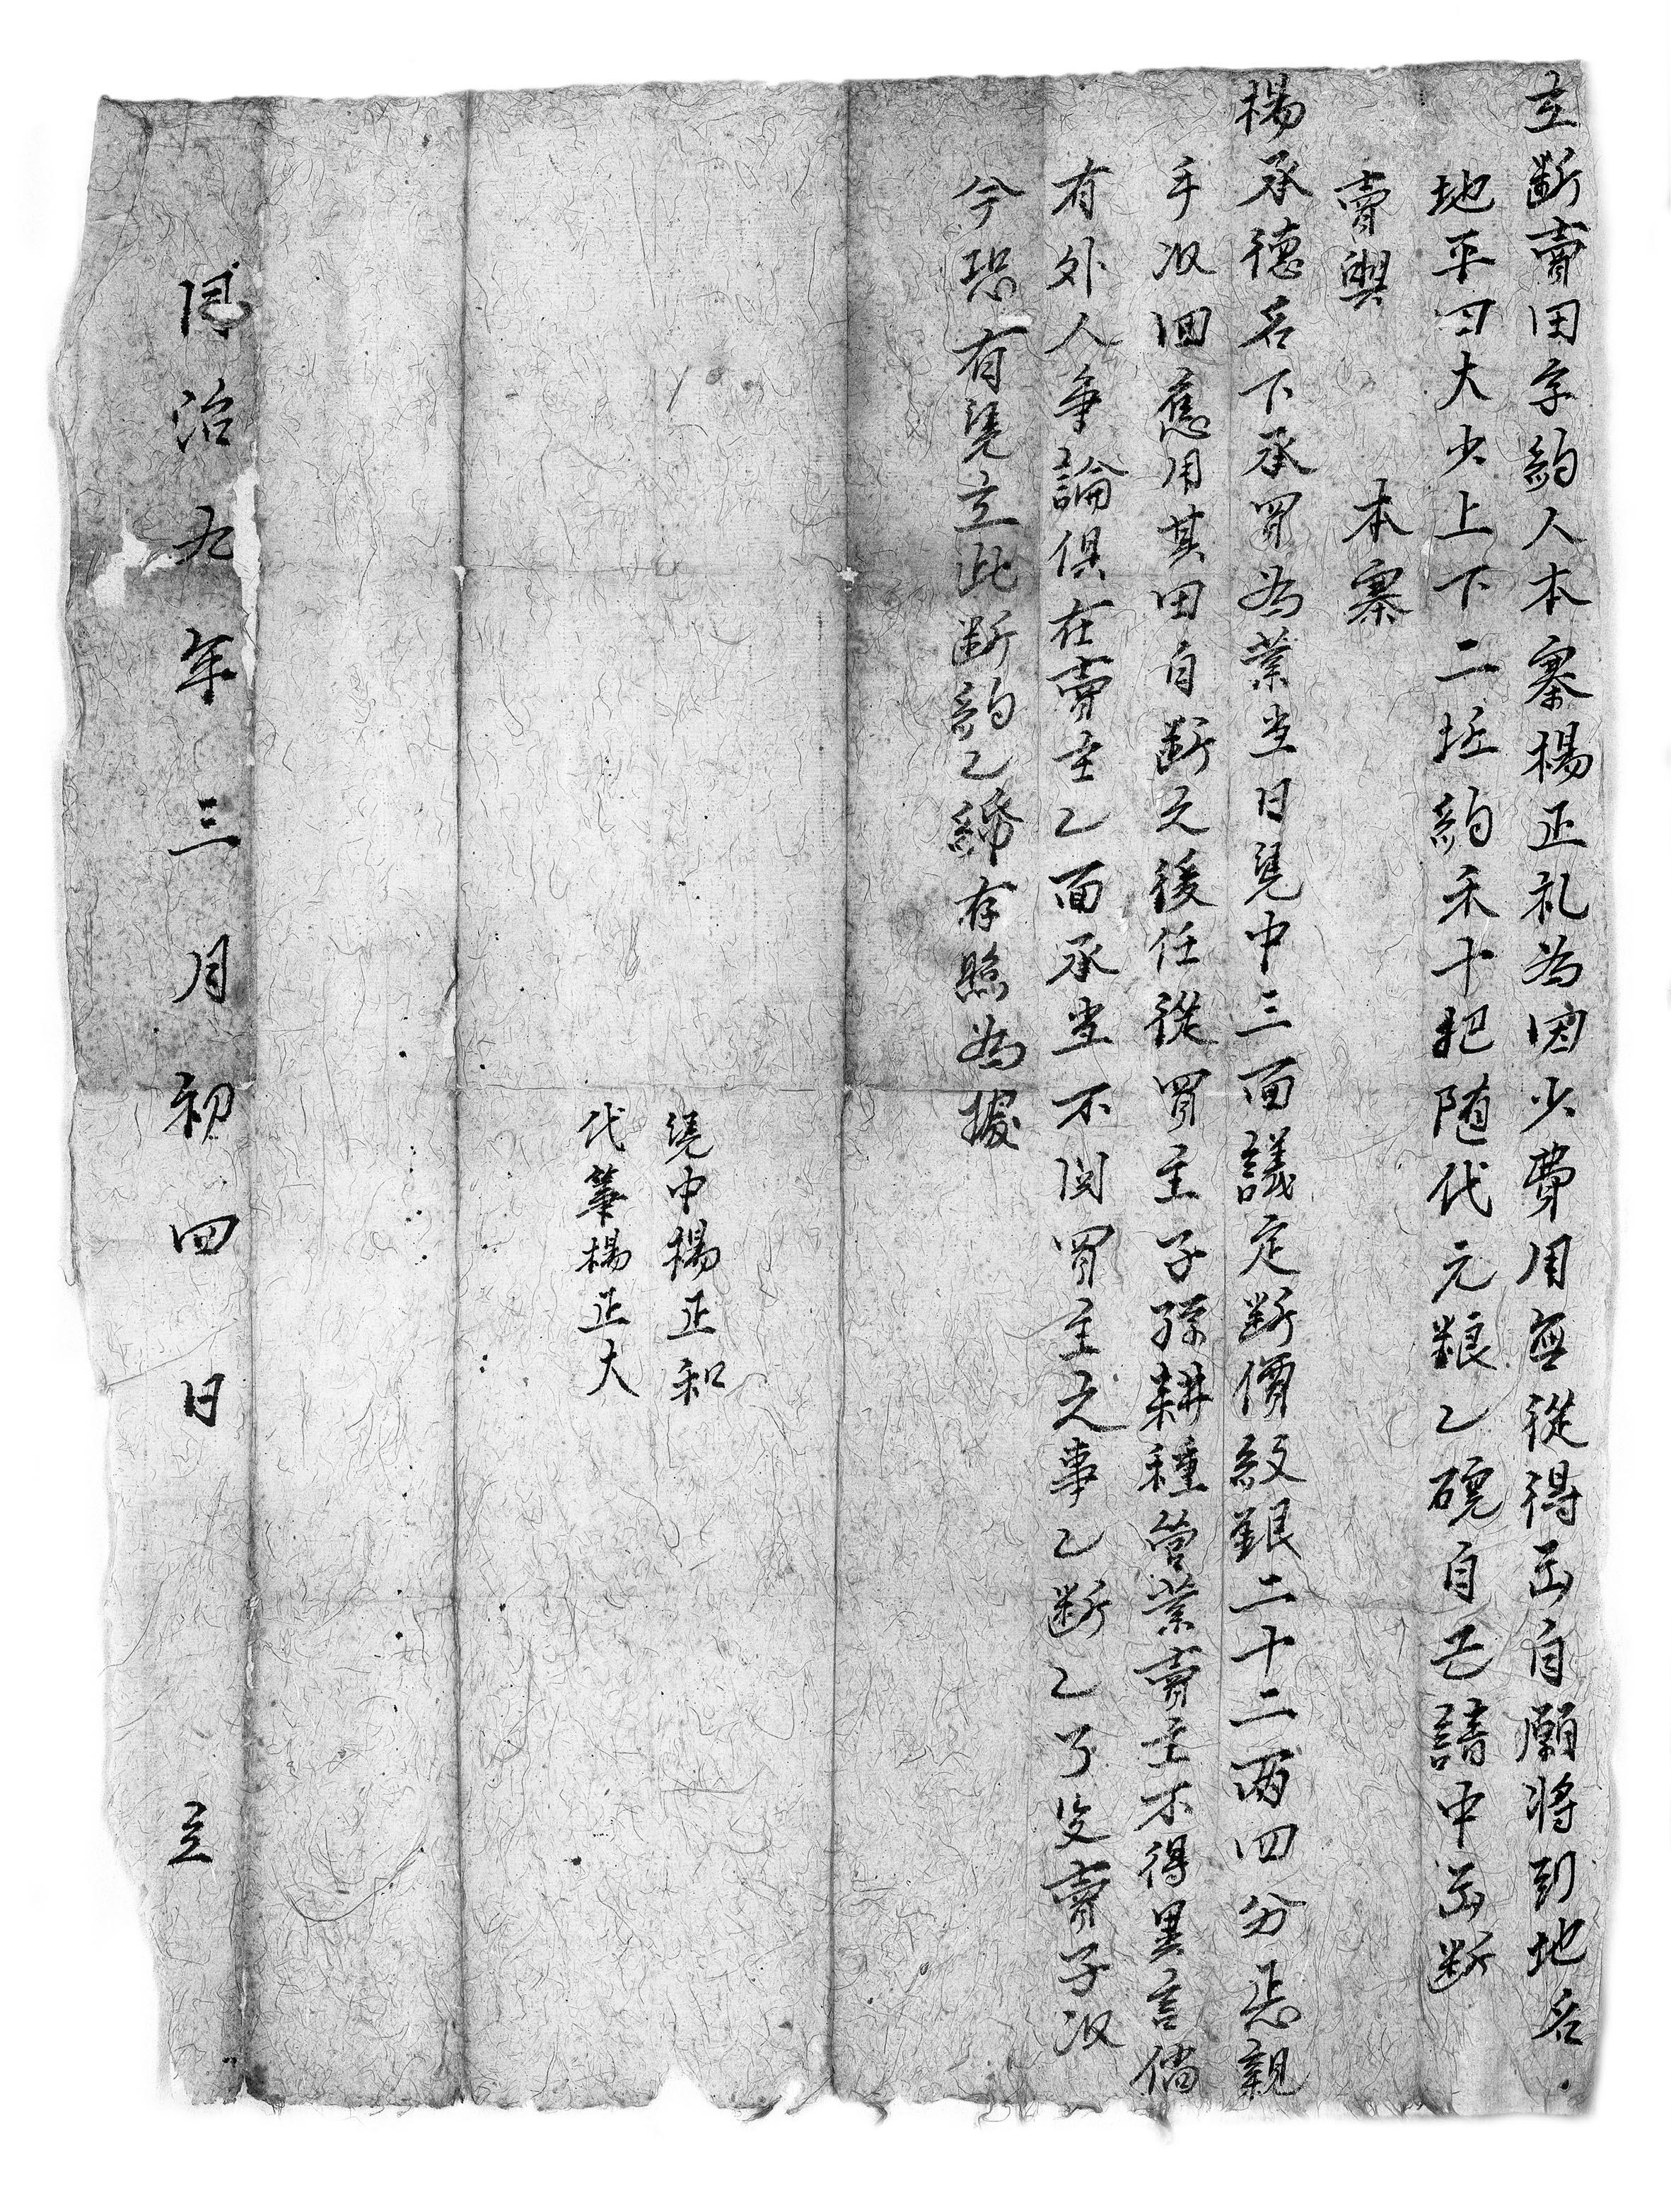 立斷賣田字約人本寨楊正礼為因少費用無從得出自願將到地名
地平田大少上下二坵約禾十把随代元粮乙碗自己請中出斷
賣與　本寨
楊承德名下承買為業当日凴中三面議定斷價紋銀二十二两四分悉親
手収回應用其田自斷之後任從買主子孫耕種管業賣主不得異言倘
有外人争論俱在賣主乙面承当不関買主之事乙斷乙了父賣子収
今恐有凴立此斷約乙紙存照為據
凴中楊正和
代筆楊正大
同治九年三月初四日　立